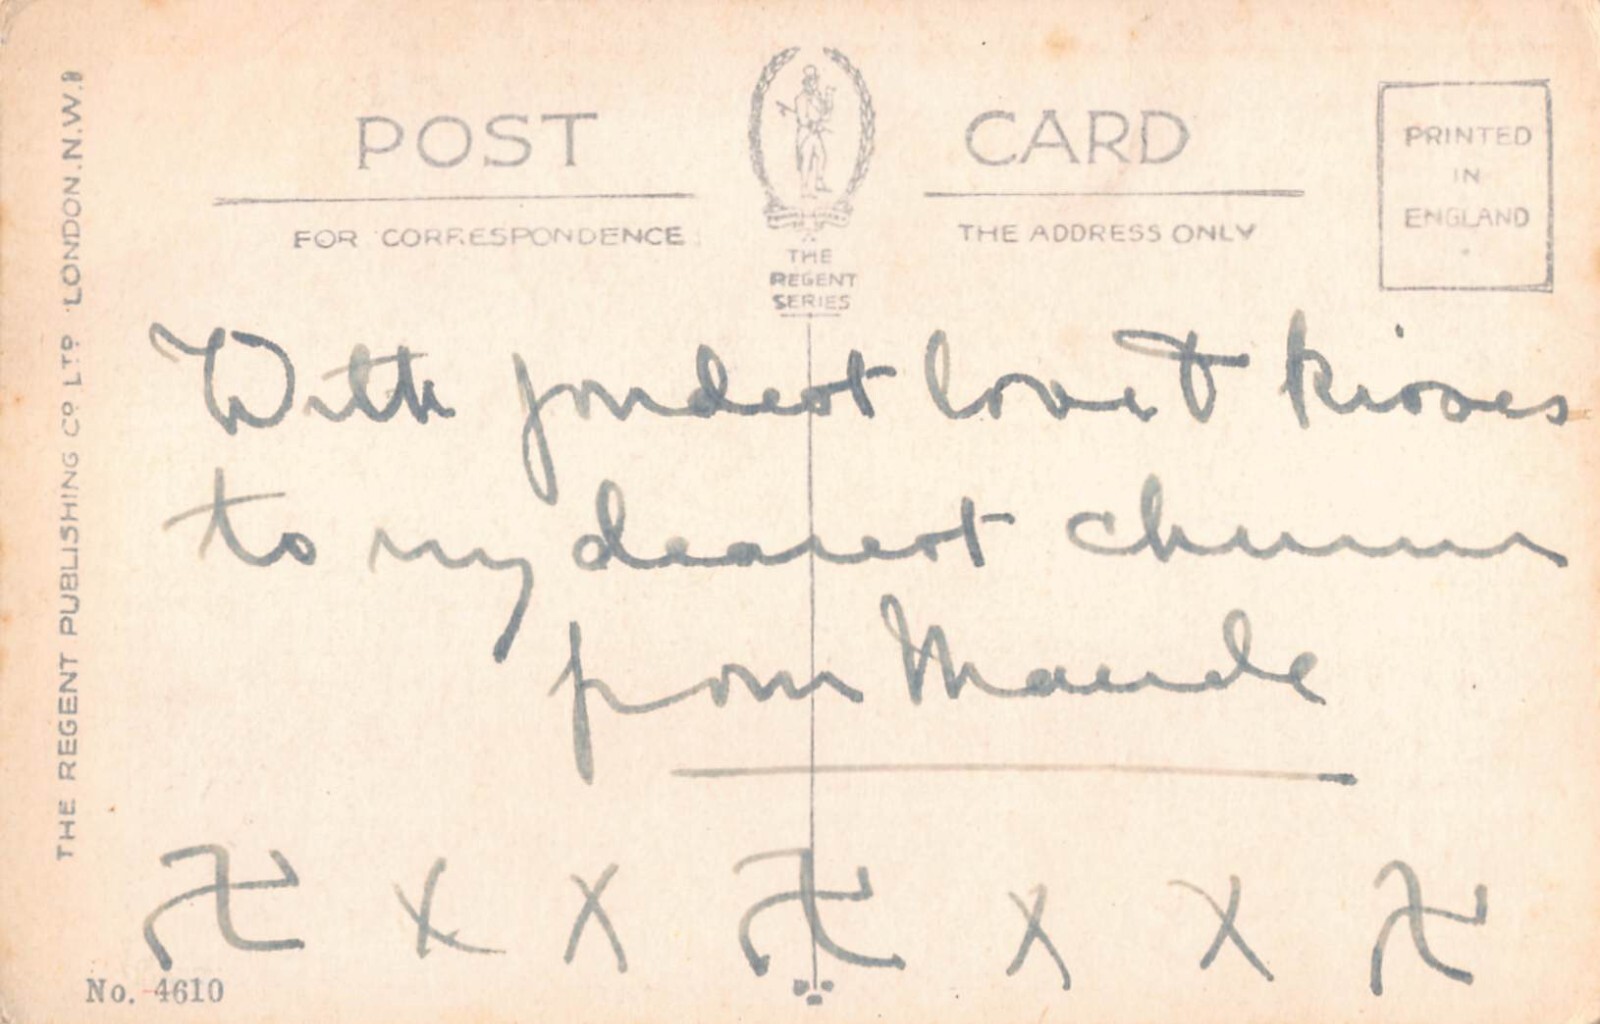 POST CARD
FOR CORRESPONDENCE
THE ADDRESS ONLY
PRINTED
IN
ENGLAND
THE
REGENT
SERIES
THE REGENT PUBLISHING CO LTD LONDON. N.W.1
With fondest love & kisses
to my dearest chum
from Maude
x x x x
No. 4610